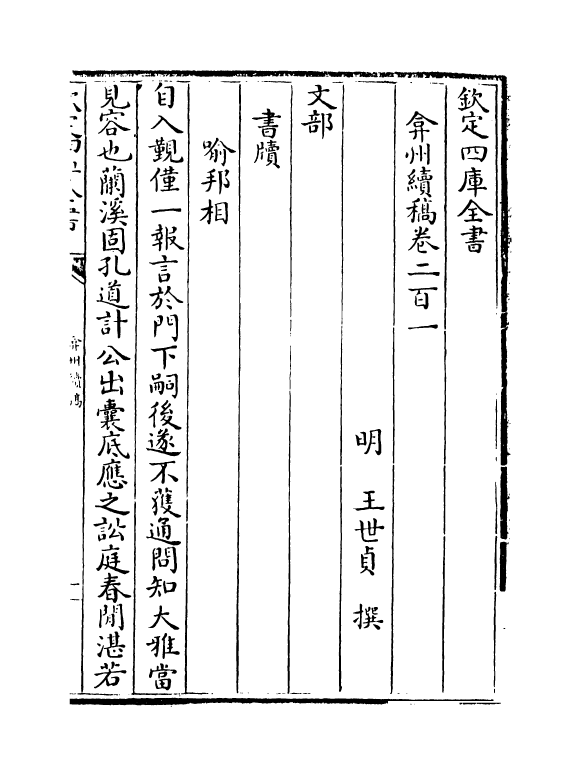 欽定四庫全書
弇州續稿卷二百一
明 王世貞 撰
文部
書牘
喻邦相
自入觀僅一報言於門下嗣後遂不獲通問知大雅當
見容也蘭溪固孔道計公出囊底應之訟庭春閒湛若
弇州續稿